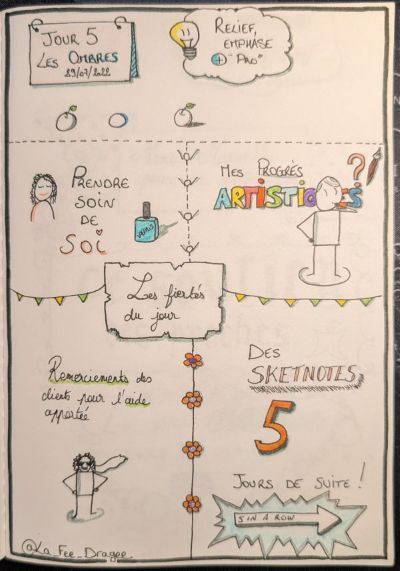 JOUR 5
LES OMBRES
29/07/2022
RELIEF,
EMPHASE
+ "PRO"
PRENDRE
SOIN
DE
SOI
VERNIS
MES PROGRÈS
ARTISTIQUES
?
Les fiertés
du jour
Remerciements des
clients pour l'aide
apportée
DES
SKETNOTES
5
JOURS DE SUITE !
5 IN A ROW
@La_Fee_Dragee_